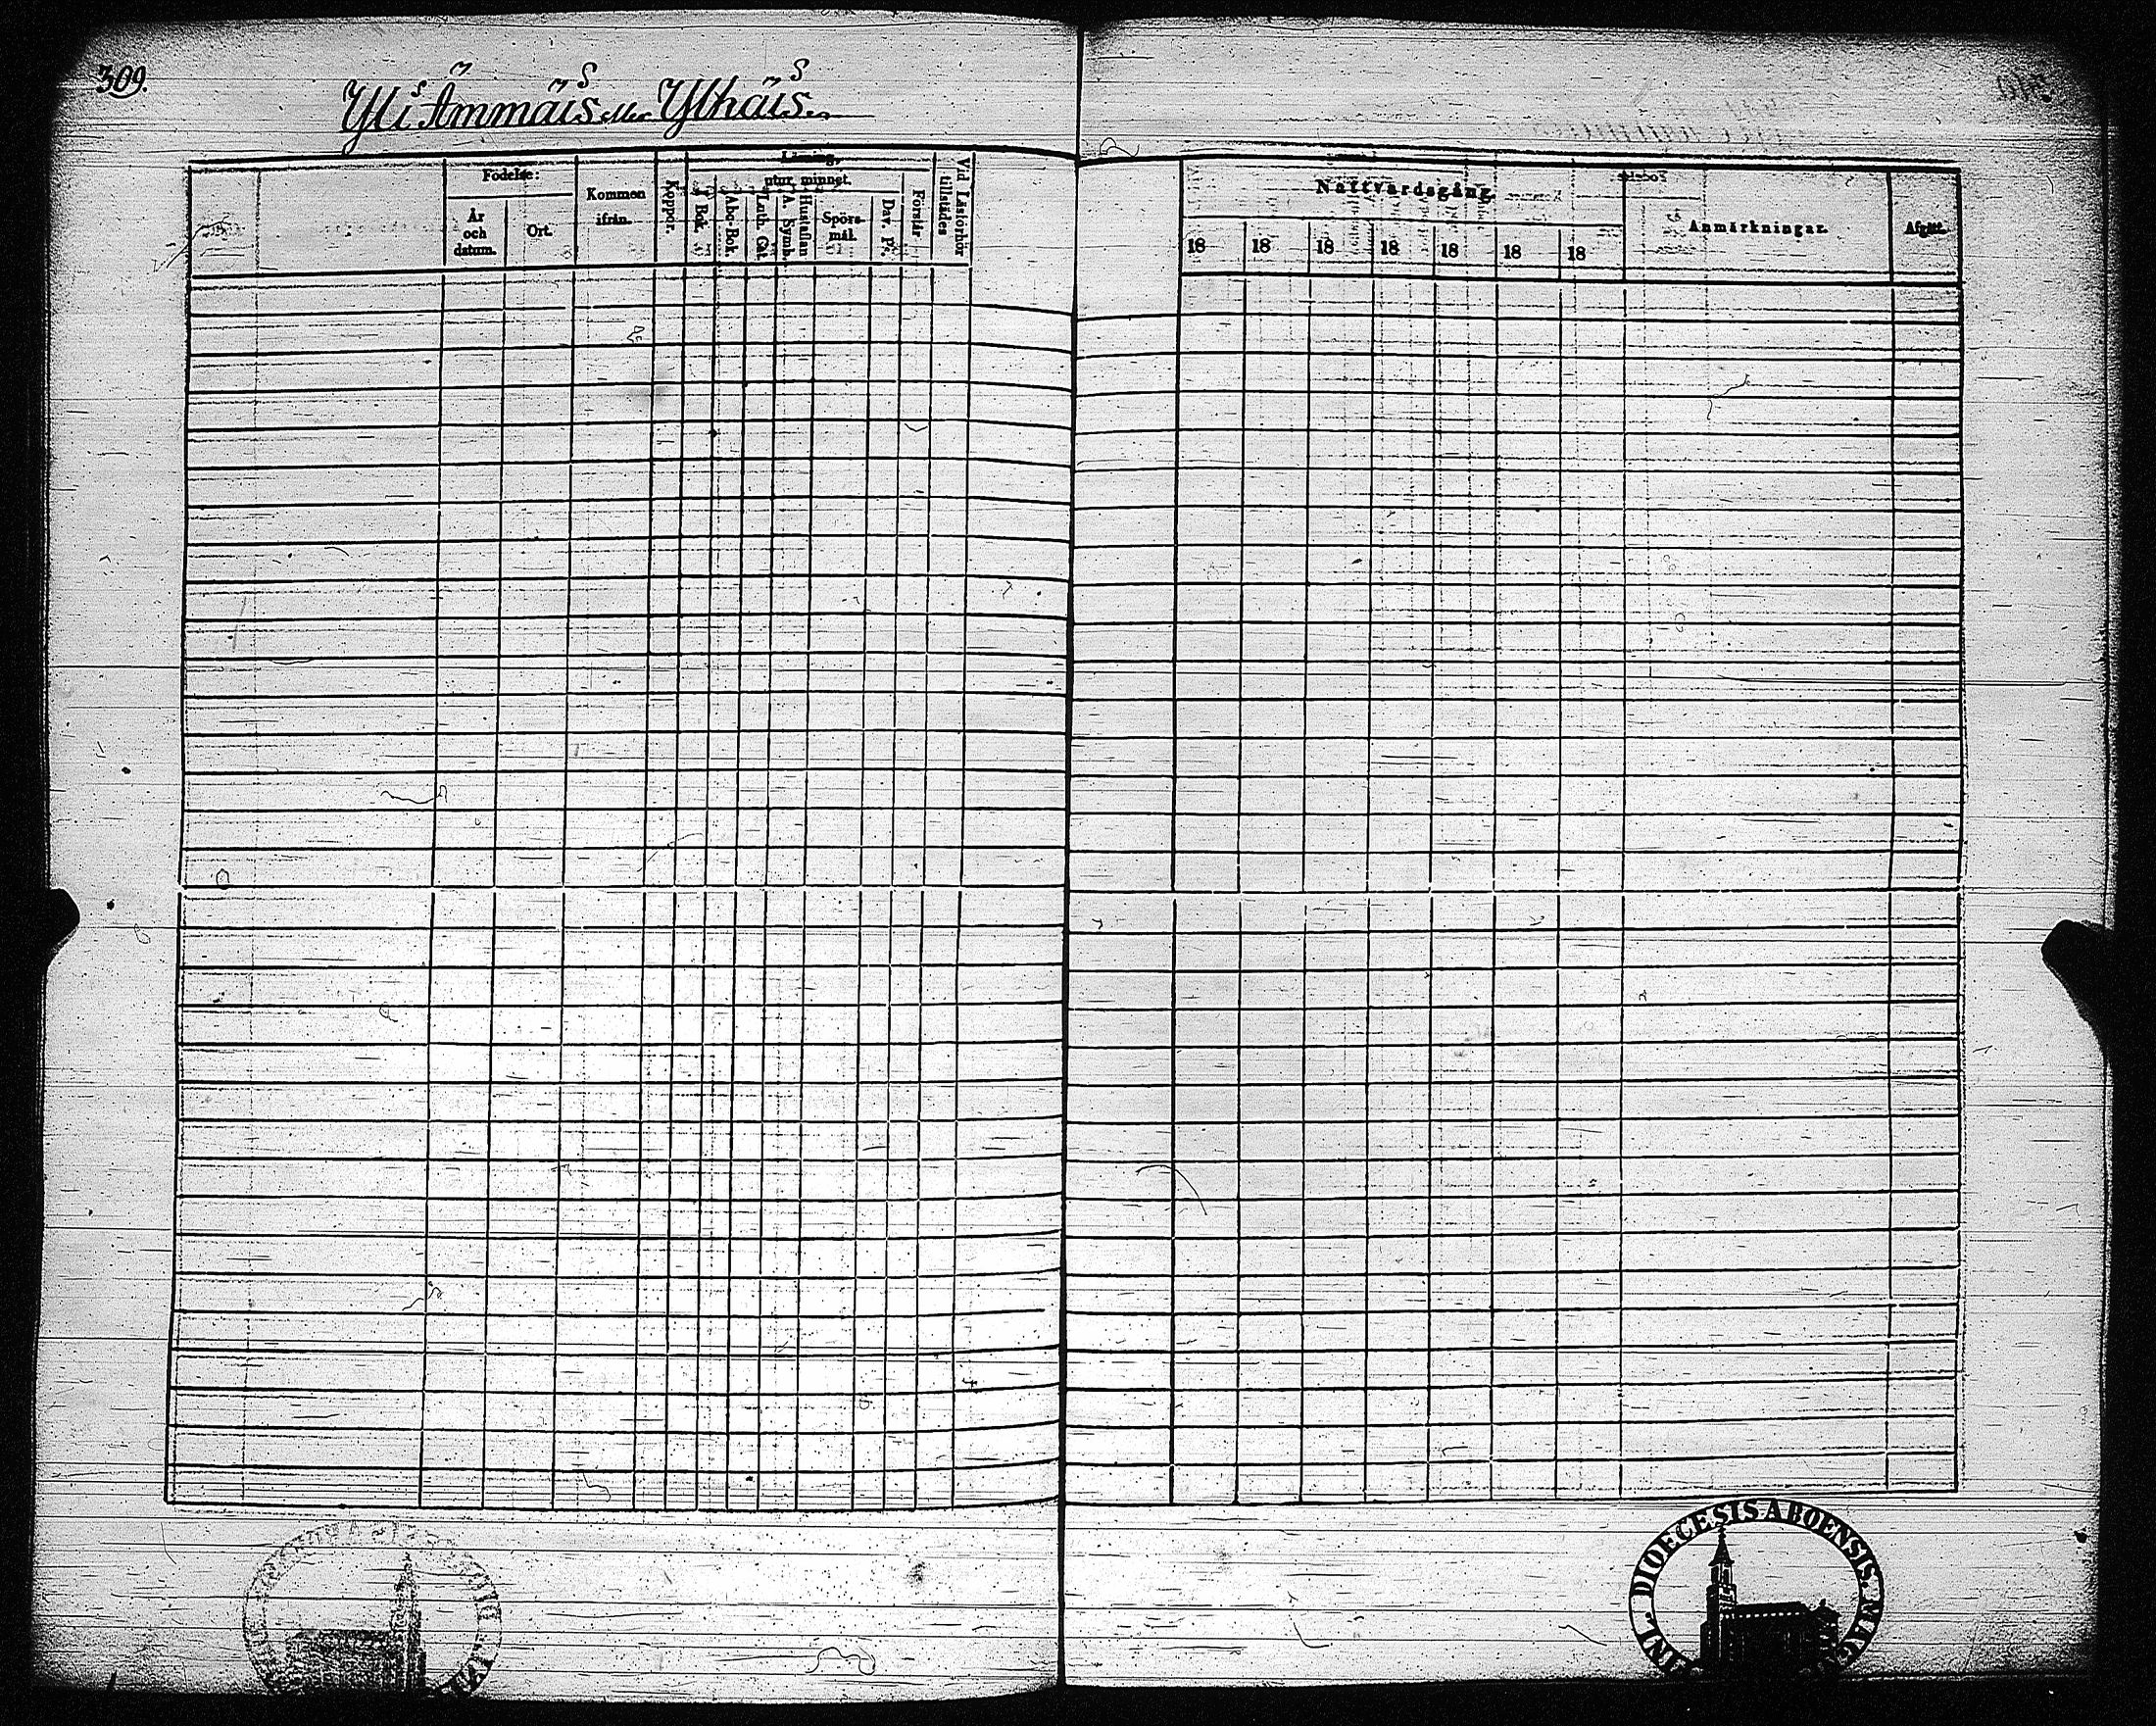 309.
Yli Ämmäis eller Ylhäis
Födelse:
År
och
datum.
Ort.
Kommen
ifrån.
Koppor.
Läsning,
utur minnet.
I Bok.
Abc-Bok.
Luth. Cat.
A. Symb.
Hustaflan
Spörs-
mål.
Dav. Ps.
Förstår
Vid Läsförhör
tillstädes
Nattvardsgång.
18 18 18 18 18 18 18
Anmärkningar.
Afgått.
DIOECESIS ABOENSIS. MAGN